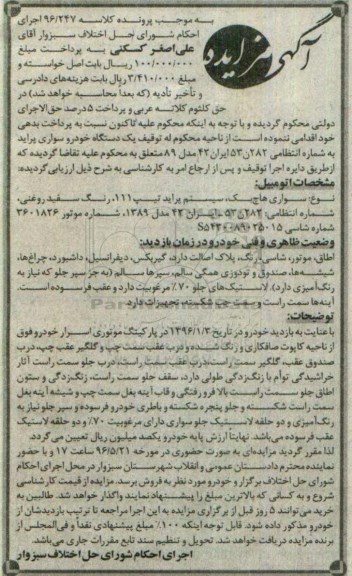 آگهی مزایده
به موجب پرونده کلاسه ۹۶/۲۴۷ اجرای
احکام شورای حل اختلاف سبزوار آقای
علی اصغر کسکنی به پرداخت مبلغ
۱۰۰/۰۰۰/۰۰۰ ریال بابت اصل خواسته و
مبلغ ۳/۴۱۰/۰۰۰ ریال بابت هزینه‌های دادرسی
و تأخیر تأدیه (که بعدا محاسبه خواهد شد) در
حق کلثوم کلاته عربی و پرداخت ۵ درصد حق‌الاجرای
دولتی محکوم گردیده و با توجه به اینکه محکوم علیه تاکنون نسبت به پرداخت بدهی
خود اقدامی ننموده است از ناحیه محکوم له توقیف یک دستگاه خودرو سواری پراید
به شماره انتظامی ۲۸۲ن۵۳ ایران ۴۲ مدل ۸۹ متعلق به محکوم علیه تقاضا گردیده که
از طریق دایره اجرا توقیف و پس از ارجاع امر به کارشناسی به شرح ذیل ارزیابی گردیده:
مشخصات اتومبیل:
نوع: سواری هاچ بک، سیستم پراید تیپ ۱۱۱، رنگ سفید روغنی،
شماره انتظامی: ۲۸۲ن۵۳ ـ ایران ۴۲ مدل ۱۳۸۹، شماره موتور ۳۶۰۱۸۲۶
شماره شاسی
وضعیت ظاهری و فنی خودرو در زمان بازدید:
اطاق، موتور، شاسی، رنگ، پلاک اصالت دارد، گیربکس، دیفرانسیل، داشبورد، چراغ‌ها،
شیشه‌ها، صندوق و تودوزی همگی سالم، سپرها سالم (به جز سپر جلو که نیاز به
رنگ‌آمیزی دارد). لاستیک‌های جلو ۷۰٪ مرغوبیت دارد و عقب فرسوده است.
آینه‌ها سمت راست و سمت چپ شکسته، تجهیزات دارد
توضیحات:
با عنایت به بازدید خودرو در تاریخ ۱۳۹۶/۱/۳ در پارکینگ موتوری اسرار خودرو فوق
از ناحیه کاپوت صافکاری و رنگ شده و درب عقب سمت چپ و گلگیر عقب چپ، درب
صندوق عقب، گلگیر سمت راست، درب عقب سمت راست، درب جلو سمت راست آثار
خراشیدگی توأم با رنگ‌زدگی طولی دارد، سقف جلو سمت راست، زنگ‌زدگی و ستون
اطاق جلو سمت راست بالا فرورفتگی و قاب آینه بغل سمت چپ و شیشه آینه بغل
سمت راست شکسته و جلو پنجره شکسته و باطری خودرو فرسوده و سپر جلو نیاز به
رنگ‌آمیزی و دو حلقه لاستیک جلو سواری دارای مرغوبیت ۷۰٪ و دو حلقه لاستیک
عقب فرسوده می‌باشد. نهایتا ارزش پایه خودرو یکصد میلیون ریال تعیین می‌گردد.
لذا مقرر گردید مزایده‌ای به صورت حضوری در مورخه ۹۶/۵/۲۱ ساعت ۱۷ و با حضور
نماینده محترم دادستان عمومی و انقلاب شهرستان سبزوار در محل اجرای احکام
شورای حل اختلاف برگزار و خودرو مورد نظر به فروش برسد. مزایده از قیمت کارشناسی
شروع و به کسانی که بالاترین مبلغ را پیشنهاد نمایند واگذار خواهد شد. طالبین به
خرید می‌توانند ۵ روز قبل از برگزاری مزایده به این اجرا مراجعه تا ترتیب بازدیدشان از
خودرو مذکور داده شود. قابل توجه اینکه ۱۰۰٪ مبلغ پیشنهادی نقدا و فی‌المجلس از
برنده مزایده دریافت خواهد شد. تحویل و تنظیم سند تابع مقررات جاری می‌باشد.
اجرای احکام شورای حل اختلاف سبزوار